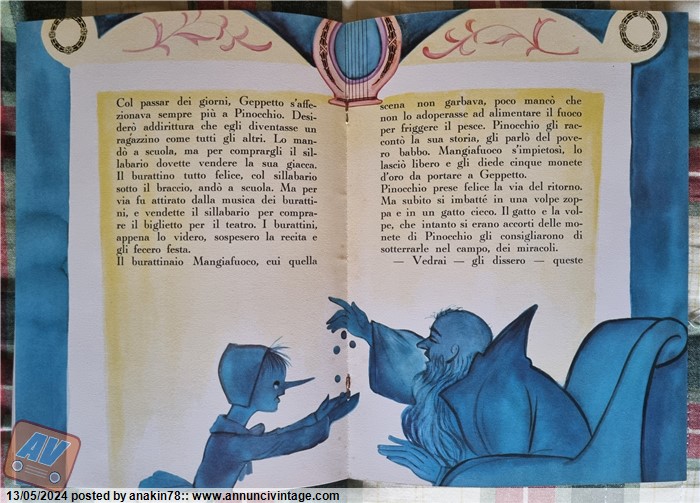 Col passar dei giorni, Geppetto s'affe-
zionava sempre più a Pinocchio. Desi-
derò addirittura che egli diventasse un
ragazzino come tutti gli altri. Lo man-
dò a scuola, ma per comprargli il sil-
labario dovette vendere la sua giacca.
Il burattino tutto felice, col sillabario
sotto il braccio, andò a scuola. Ma per
via fu attirato dalla musica dei buratti-
ni, e vendette il sillabario per compra-
re il biglietto per il teatro. I burattini,
appena lo videro, sospesero la recita e
gli fecero festa.
Il burattinaio Mangiafuoco, cui quella
scena non garbava, poco mancò che
non lo adoperasse ad alimentare il fuoco
per friggere il pesce. Pinocchio gli rac-
contò la sua storia, gli parlò del pove-
ro babbo. Mangiafuoco s'impietosì, lo
lasciò libero e gli diede cinque monete
d'oro da portare a Geppetto.
Pinocchio prese felice la via del ritorno.
Ma subito si imbatté in una volpe zop-
pa e in un gatto cieco. Il gatto e la vol-
pe, che intanto si erano accorti delle mo-
nete di Pinocchio gli consigliarono di
sotterrarle nel campo, dei miracoli.
— Vedrai — gli dissero — queste
AV
13/05/2024 posted by anakin78:: www.annuncivintage.com